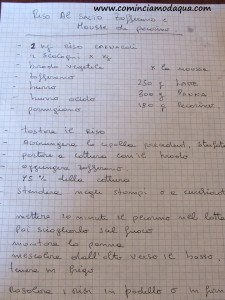 http://www.cominciamodaqua.com
Riso Al Salto Zafferano e
Mousse di pecorino.
- 2 kg riso carnaroli
- 4 scalogni x kg
- brodo vegetale x la mousse
- zafferano 250 g latte
- burro 300 g panna
- burro acido 180 g pecorino
- pomporino
- tostare il riso
- aggiungere la cipolla
portare a cottura con il brodo
- aggiungere zafferano
- 75% della cottura
- stendere negli stampi o a cucchiai
mettere 10 minuti il pecorino nel latte
poi scioglierlo sul fuoco
- montare la panna
- mescolare dall'alto verso il basso,
tenere in frigo
Rosolare i risi in padella o in forno